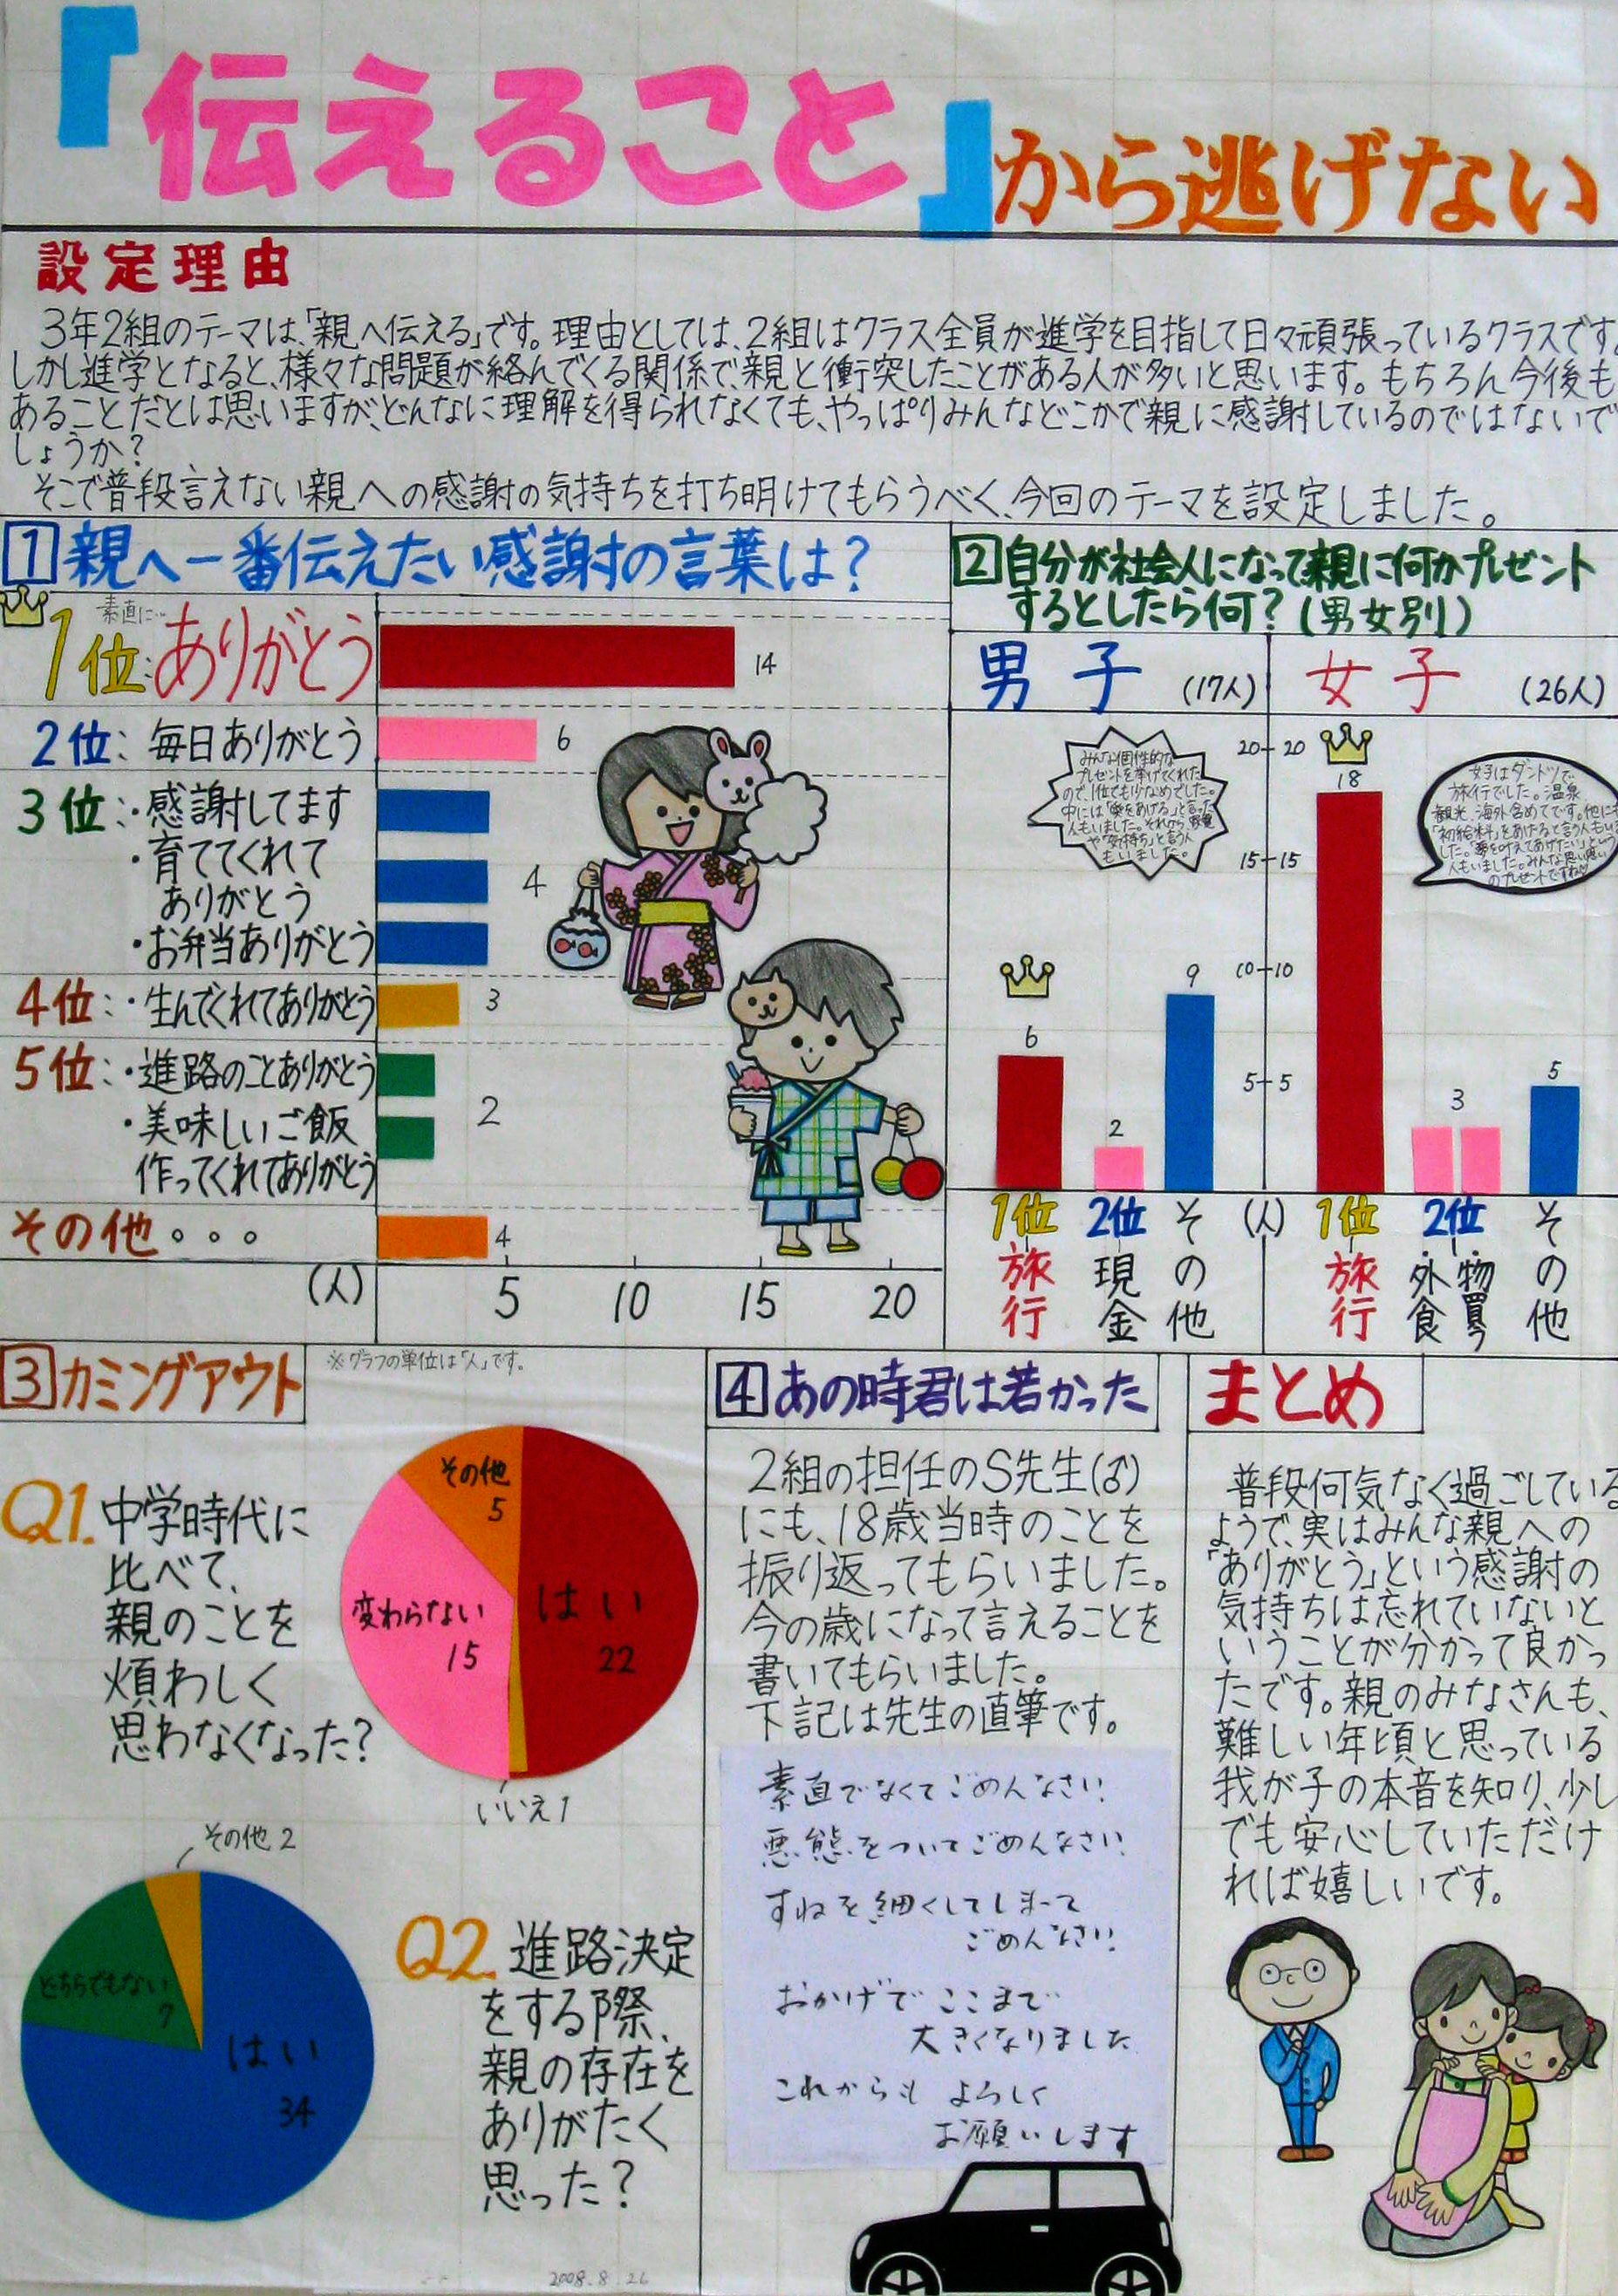 「伝えること」から逃げない
設定理由
3年2組のテーマは、「親へ伝える」です。理由としては、2組はクラス全員が進学を目指して日々頑張っているクラスです。
しかし進学となると、様々な問題が絡んでくる関係で、親と衝突したことがある人が多いと思います。もちろん今後も
あることだとは思いますが、どんなに理解を得られなくても、やっぱりみんなどこかで親に感謝しているのではないで
しょうか?
そこで普段言えない親への感謝の気持ちを打ち明けてもらうべく、今回のテーマを設定しました。
1 親へ一番伝えたい感謝の言葉は?
素直に…
1位:ありがとう
14
2位:毎日ありがとう
6
3位:・感謝してます
・育ててくれて
ありがとう
・お弁当ありがとう
4
4位:・生んでくれてありがとう
3
5位:・進路のことありがとう
・美味しいご飯
作ってくれてありがとう
2
その他・・・
4
(人) 5 10 15 20
2 自分が社会人になって親に何かプレゼント
するとしたら何?(男女別)
男子 (17人)
女子 (26人)
みんな個性的な
プレゼントを挙げてくれた
ので、1位でも少なめでした。
中には「愛をあげる」と言った
人もいました。それから
や「気持ち」と言う人
もいました。
女子はダントツで
旅行でした。温泉
観光、海外含めてです。他に
「初給料」をあげると言う人もいま
した。「夢を叶えてあげたい」という
人もいました。みんな思い思い
のプレゼントですね
20 20
15 15
10 10
5 5
(人)
6
2
9
18
3
5
1位 旅行
2位 現金
その他
1位 旅行
2位 ・外食 ・物買う
その他
3 カミングアウト
※グラフの単位は「人」です。
Q1. 中学時代に
比べて、
親のことを
煩わしく
思わなくなった?
その他
5
はい
22
変わらない
15
いいえ1
Q2. 進路決定
をする際、
親の存在を
ありがたく
思った?
その他2
どちらでもない
7
はい
34
4 あの時君は若かった
2組の担任のS先生(♂)
にも、18歳当時のことを
振り返ってもらいました。
今の歳になって言えることを
書いてもらいました。
下記は先生の直筆です。
素直でなくてごめんなさい
悪態をついてごめんなさい
すねを細くしてしまって
ごめんなさい
おかげで ここまで
大きくなりました
これからも よろしく
お願いします
まとめ
普段何気なく過ごしている
ようで、実はみんな親への
「ありがとう」という感謝の
気持ちは忘れていないと
いうことが分かって良かっ
たです。親のみなさんも、
難しい年頃と思っている
我が子の本音を知り、少し
でも安心していただけ
れば嬉しいです。
2008.8.26